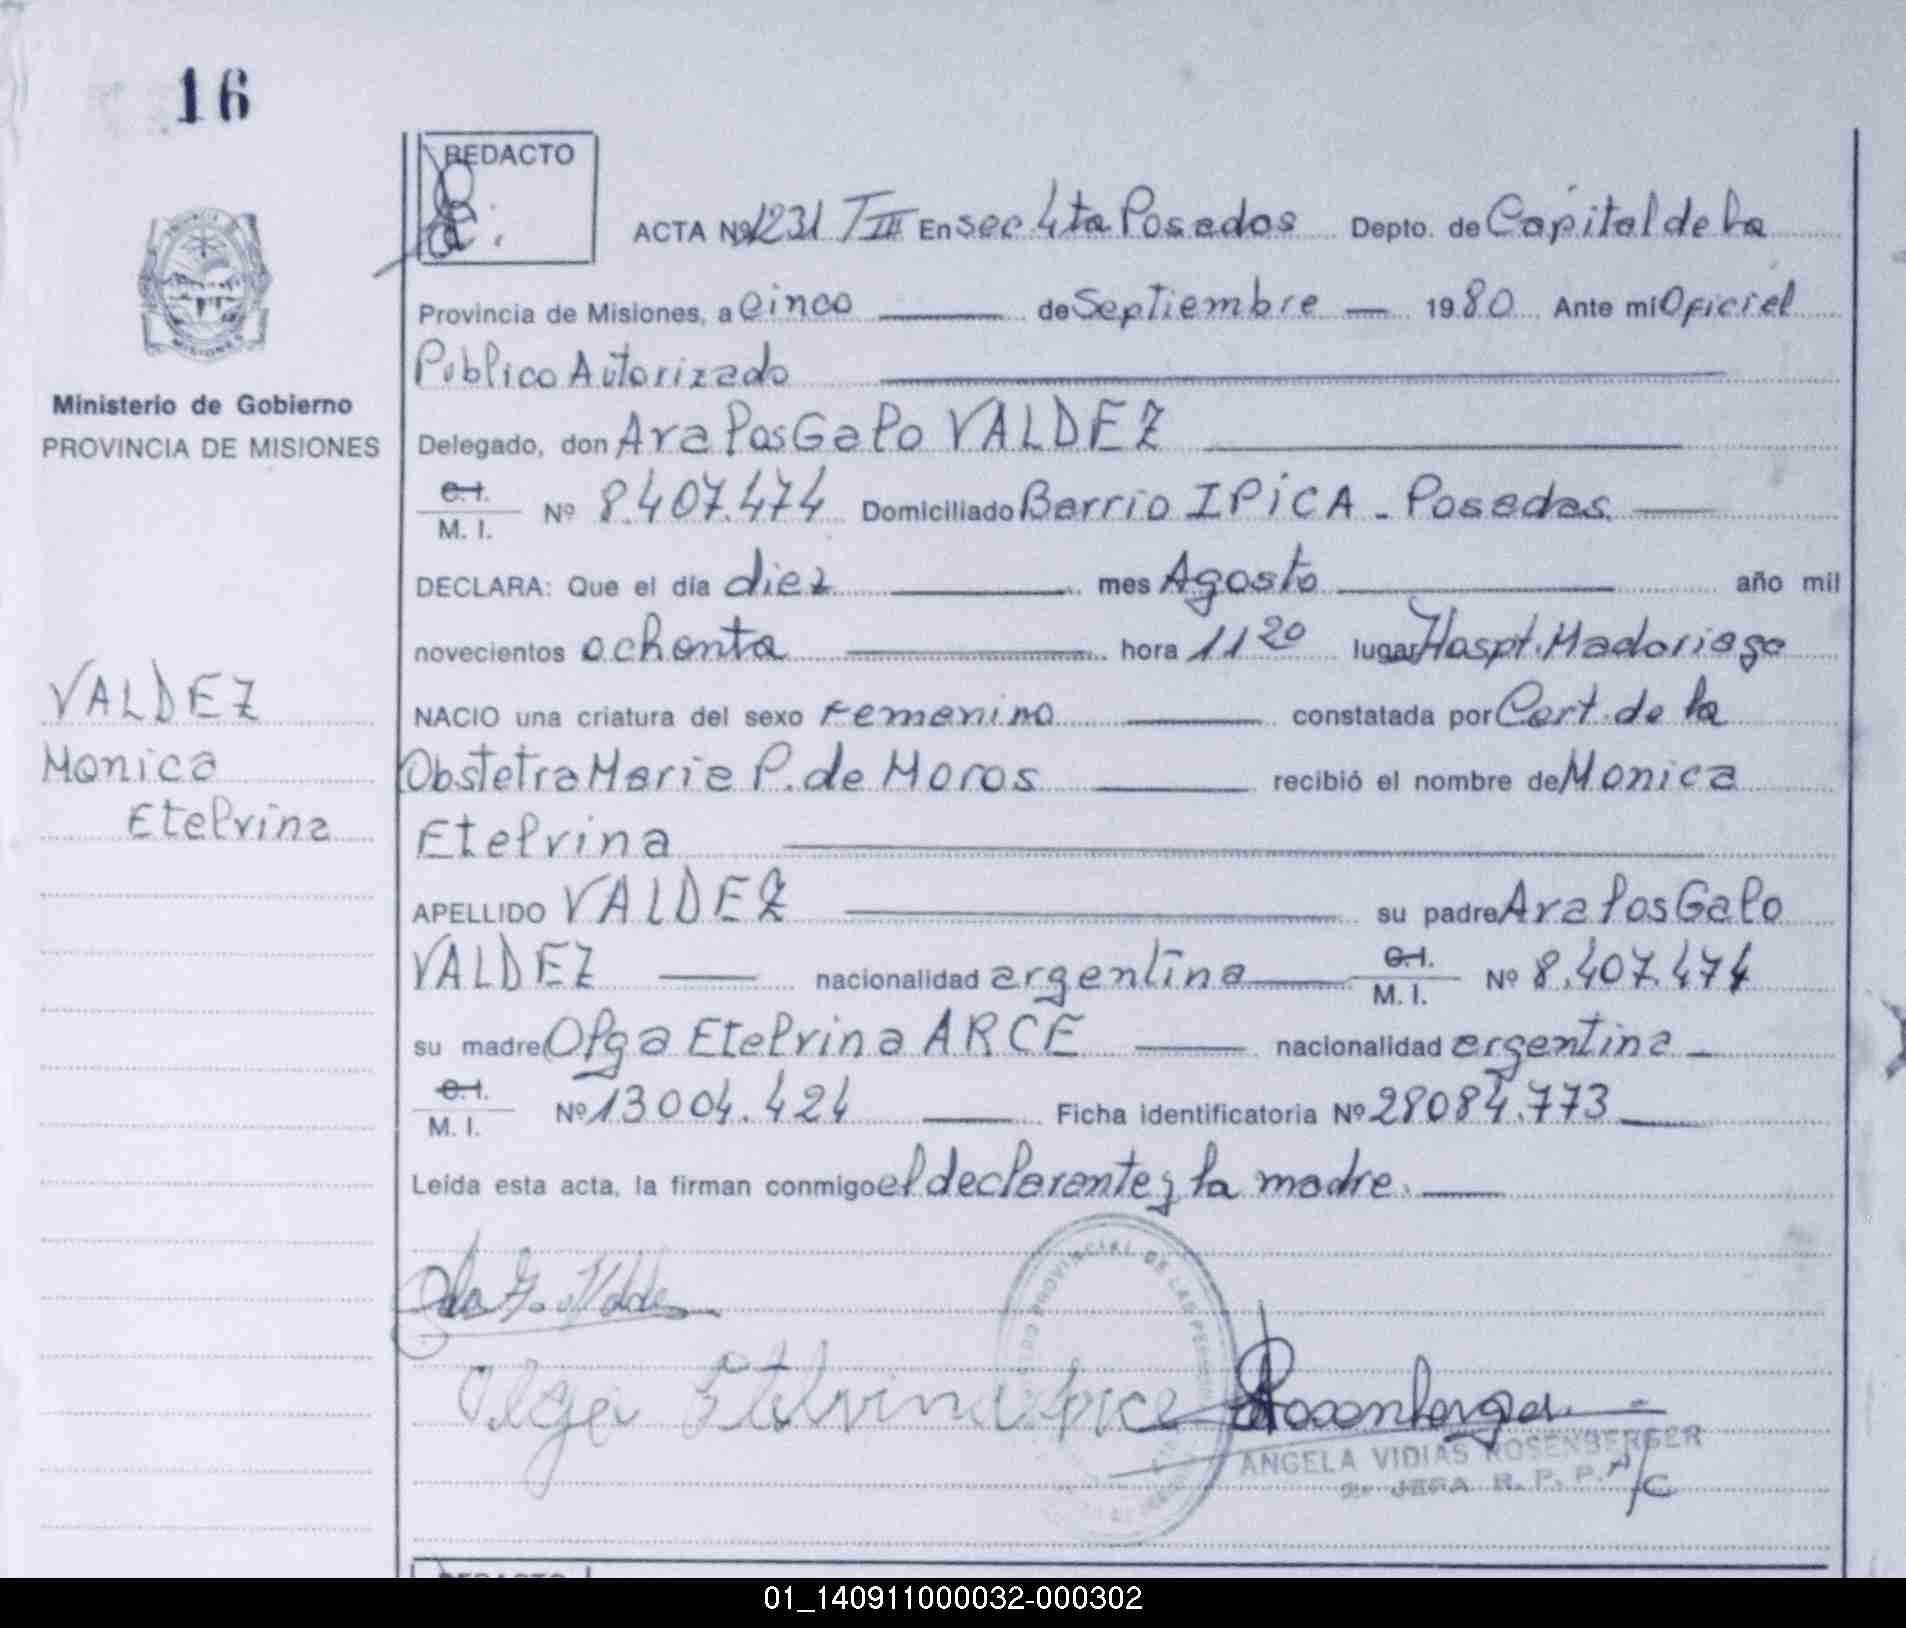 16
REDACTO
ACTA Nº 1231 T III En sec 4ta Posadas Depto. de Capital de la
Provincia de Misiones, a Cinco de Septiembre 1980 Ante mi Oficial
Publico Autorizado
Ministerio de Gobierno
PROVINCIA DE MISIONES
Delegado, don Ara Pos Galo VALDEZ
C.I.
M. I. Nº 8.407.474 Domiciliado Barrio IPICA - Posadas
DECLARA: Que el día diez mes Agosto año mil
novecientos ochenta hora 11 20 lugar Hospt. Madariaga
VALDEZ
Monica
Etelvina
NACIO una criatura del sexo Femenino constatada por Cert. de la
Obstetra Maria P. de Moros recibió el nombre de Monica
Etelvina
APELLIDO VALDEZ su padre Ara Pos Galo
VALDEZ nacionalidad argentina C.I. M. I. Nº 8.407.474
su madre Olga Etelvina ARCE nacionalidad argentina
C.I.
M. I. Nº 13004.424 Ficha identificatoria Nº 28084.773
Leída esta acta, la firman conmigo el declarante y la madre.
Olga Etelvina Arce
Rosenberger
ANGELA VIDIAS ROSENBERGER
2º JEFA R. P. P. A/C
REDACTO
01_140911000032-000302